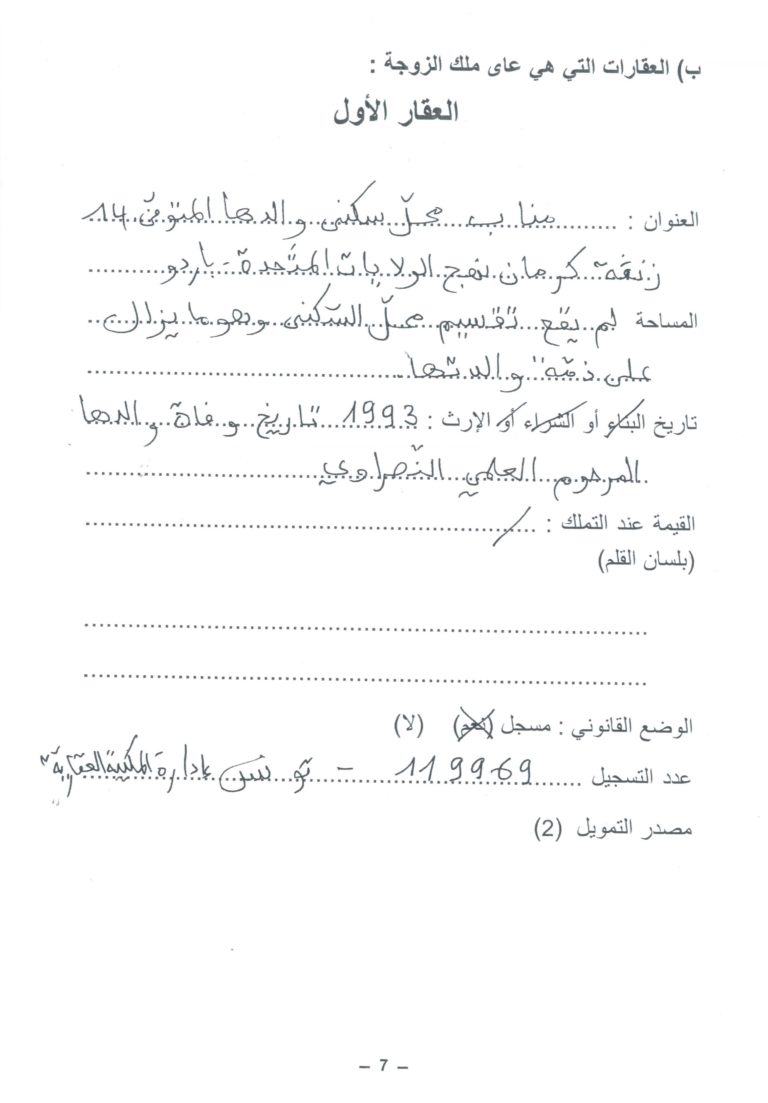 ب) العقارات التي هي عاى ملك الزوجة :
العقار الأول
العنوان : ......... مناب محلّ سكنى والدها المتوفّى 14
زنقة كرمان نهج الولايات المتّحدة - باردو ............
المساحة لم يقع تقسيم محلّ السّكنى وهو ما يزال
على ذمّة والدتها ..............................
تاريخ البناء أو الشراء أو الإرث : 1993 تاريخ وفاة والدها
المرحوم العلمي النّصراوي ..............................
القيمة عند التملك : ../............................
(بلسان القلم)
............................................................
............................................................
الوضع القانوني : مسجل (نعم) (لا)
عدد التسجيل ........ 119969 - تونس بإدارة الملكية العقارية
مصدر التمويل (2)
– 7 –